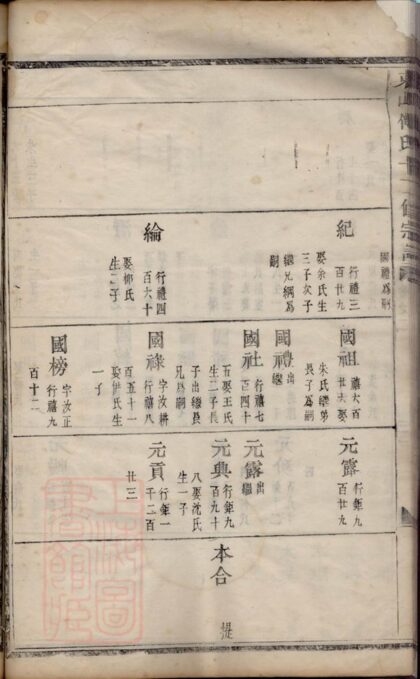 國禮爲嗣
紀
行禮三
百廿九
娶余氏生
三子次子
繼兄綱爲
嗣
綸
行禮四
百六十
娶鄭氏
生二子
國祖
行禧六百
廿六娶
朱氏繼弟
長子爲嗣
國禮
出
繼
國社
行禧七
百四十
百娶王氏
生二子長
子出繼長
兄爲嗣
國祿
字汝耕
行禧八
百五十一
娶伊氏生
一子
國榜
字汝正
行禧九
百十二
元靈
行鉅九
百廿九
元靈
出
繼
元典
行鉅九
百九十
八娶沈氏
生一子
元貢
行鉅一
千二百
廿三
本合
提